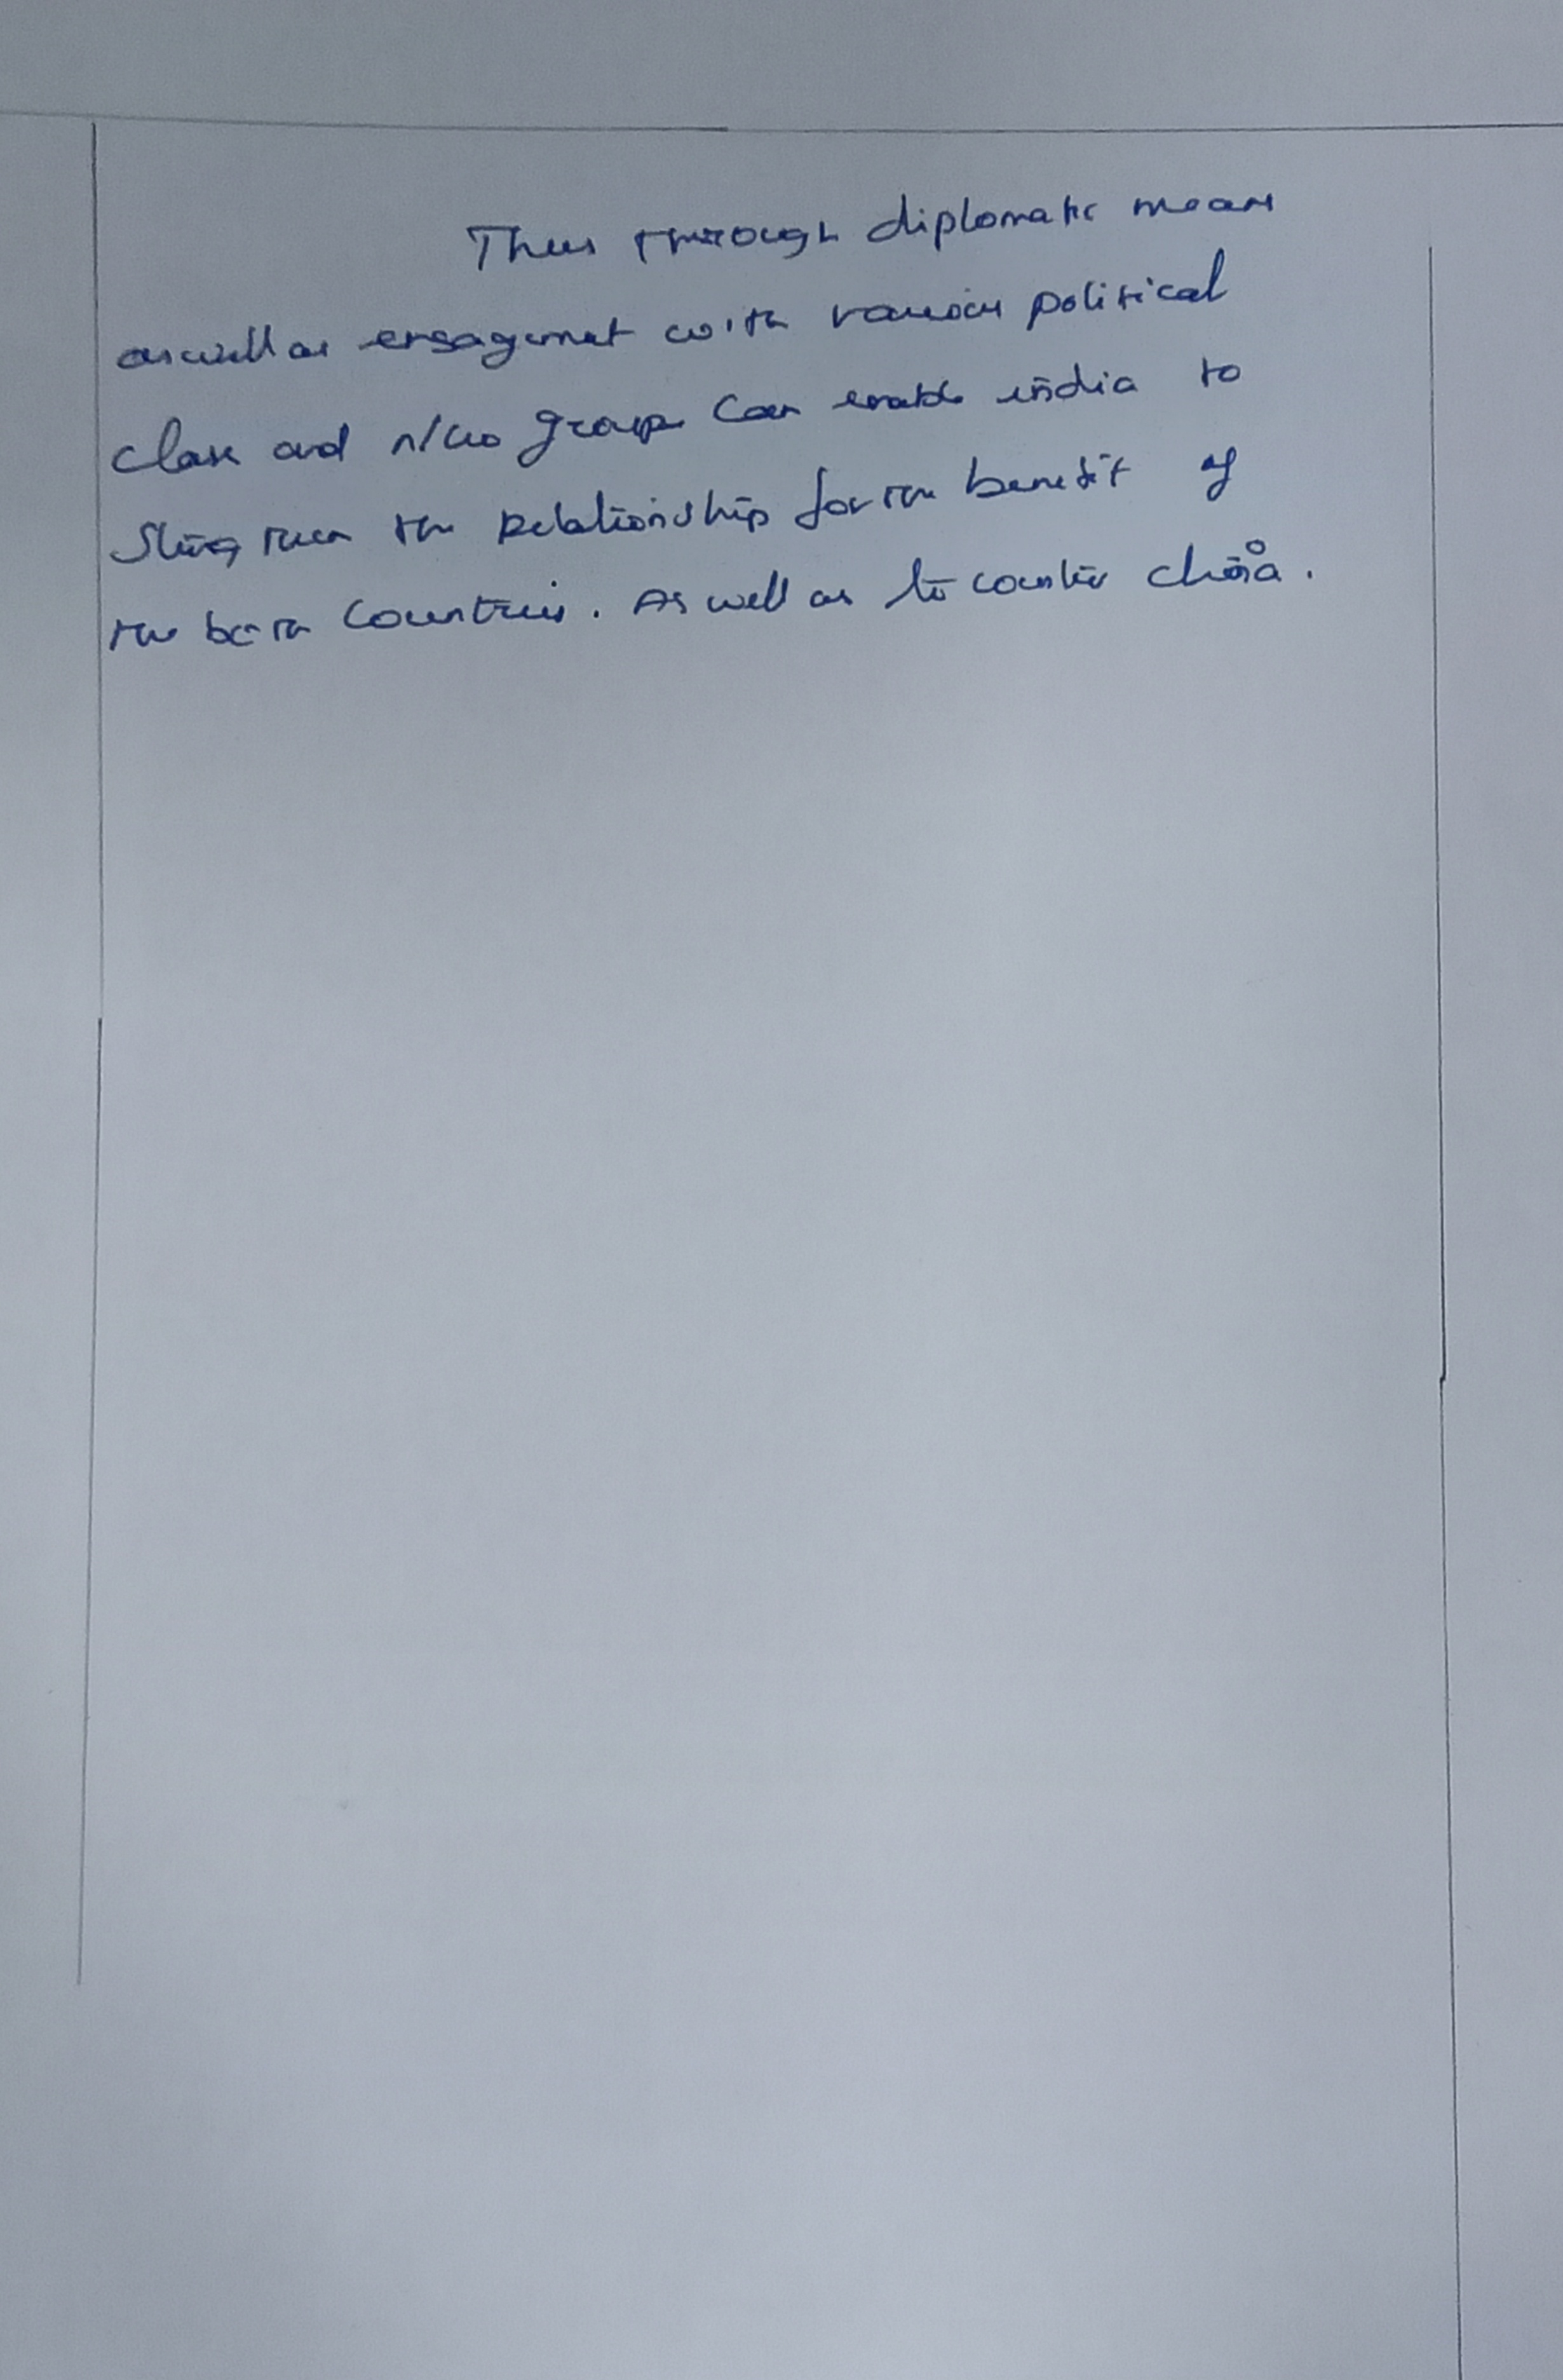 Thus through diplomatic means
as well as engagement with various political
class and groups can enable india to
Strengthen the relationship for the benefit of
the both countries. As well as to counter china.